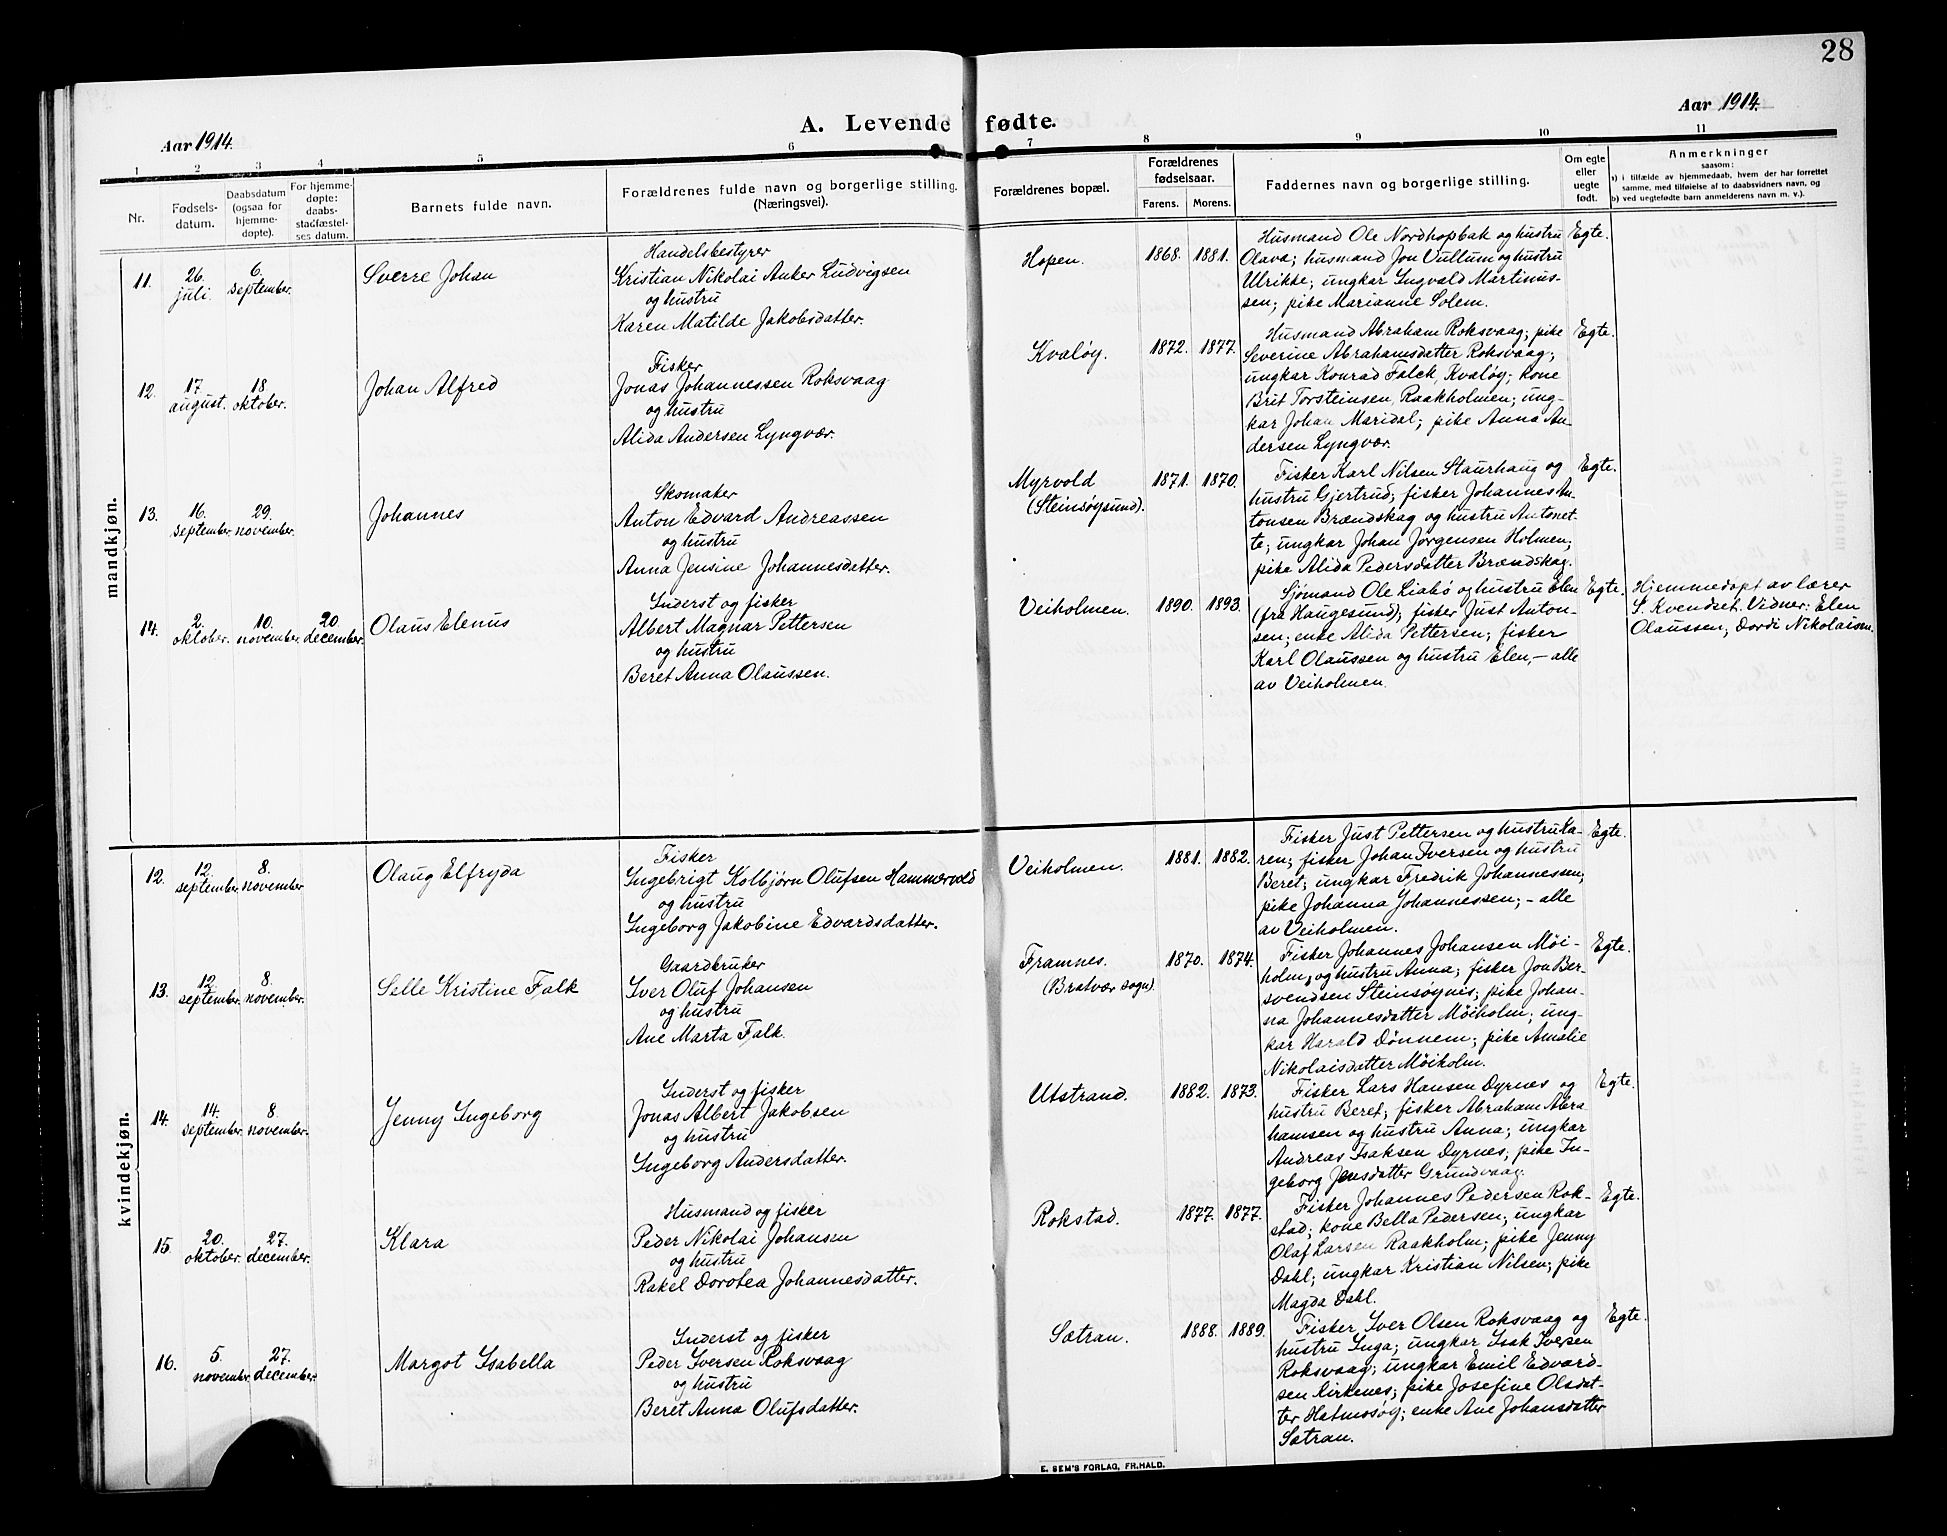 28
Aar 1914.
A. Levende fødte.
Aar 1914.
1 2 3 4 5 6 7 8 9 10 11
Nr.
Fødsels-
datum.
Daabsdatum
(ogsaa for
hjemme-
døpte).
For hjemme-
døpte:
daabs-
stadfæstel-
ses datum.
Barnets fulde navn.
Forældrenes fulde navn og borgerlige stilling.
(Næringsvei).
Forældrenes bopæl.
Forældrenes
fødselsaar.
Farens. Morens.
Faddernes navn og borgerlige stilling.
Om egte
eller
uegte
født.
Anmerkninger
saasom:
a) i tilfælde av hjemmedaab, hvem der har forrettet
samme, med tilføielse af to daabsvidners navn, og
b) ved uegtefødte barn anmelderens navn m. v.).
mandkjøn.
11.
26.
juli.
6.
september.
Sverre Johan
Handelsbestyrer
Kristian Nikolai Anker Ludvigsen
og hustru
Karen Matilde Jakobsdatter.
Hopen.
1868. 1881.
Husmand Ole Nordhopbak og hustru
Olava; husmand Jon Vullum og hustru
Ulrikke; ungkar Ingvald Martinus-
sen; pike Marianne Solem.
Egte.
12.
17.
august.
18.
oktober.
Johan Alfred
Fisker
Jonas Johannessen Roksvaag
og hustru
Alida Andersen Lyngvær.
Kvaløy.
1872. 1877.
Husmand Abraham Roksvaag; pike
Severine Abrahamsdatter Roksvaag;
ungkar Konrad Falck, Kvaløy; kone
Brit Torsteinsen, Raakholmen; ung-
kar Johan Maridal; pike Anna An-
dersen Lyngvær.
Egte.
13.
16.
september.
29.
november.
Johannes
Skomaker
Anton Edvard Andreassen
og hustru
Anna Jensine Johannesdatter.
Myrvold
(Steinsøysund).
1871. 1870.
Fisker Karl Nilsen Staurhaug og
hustru Gjertrud; fisker Johannes An-
tonsen Brændskag og hustru Antonet-
te; ungkar Johan Jørgensen Holmen;
pike Alida Pedersdatter Brændskag.
Egte.
14.
2.
oktober.
10.
november.
20.
december.
Olaus Elenus
Inderst og fisker
Albert Magnar Pettersen
og hustru
Beret Anna Olaussen.
Veiholmen.
1890. 1893.
Sjømand Ole Liabø og hustru Elen
(fra Haugesund); fisker Just Anton-
sen; enke Alida Pettersen; fisker
Karl Olaussen og hustru Elen, – alle
av Veiholmen.
Egte.
Hjemmedøpt av lærer
S. Kvendset. Vidner: Elen
Olaussen, Dordi Nikolaisen.
kvindekjøn.
12.
12.
september.
8.
november
Olaug Elfryda
Fisker
Ingebrigt Kolbjørn Olufsen Hammervold
og hustru
Ingeborg Jakobine Edvardsdatter.
Veiholmen.
1881. 1882.
Fisker Just Pettersen og hustru Ka-
ren; fisker Johan Iversen og hustru
Beret; ungkar Fredrik Johannessen;
pike Johanna Johannessen; – alle
av Veiholmen.
Egte.
13.
12.
september.
8.
november.
Selle Kristine Falk
Gaardbruker
Iver Oluf Johansen
og hustru
Ane Marta Falk.
Framnes.
(Bratvær sogn)
1870. 1874.
Fisker Johannes Johansen Møi-
holm, og hustru Anna; fisker Jon Ber-
svendsen Steinsøynes; pike Johan-
na Johannesdatter Møiholm; ung-
kar Harald Dønnem; pike Amalie
Nikolaisdatter Møiholm.
Egte.
14.
14.
september.
8.
november.
Jenny Ingeborg
Inderst og fisker
Jonas Albert Jakobsen
og hustru
Ingeborg Andersdatter.
Utstrand.
1882. 1873.
Fisker Lars Hansen Dyrnes og
hustru Beret; fisker Abraham Abra-
hamsen og hustru Anna; ungkar
Andreas Isaksen Dyrnes; pike In-
geborg Jensdatter Grundvaag.
Egte.
15.
20.
oktober.
27.
december.
Klara
Husmand og fisker
Peder Nikolai Johansen
og hustru
Rakel Dorotea Johannesdatter.
Rokstad.
1877. 1877.
Fisker Johannes Pedersen Rok-
stad; kone Bella Pedersen; ungkar
Olaf Larsen Raakholm; pike Jenny
Dahl; ungkar Kristian Nilsen; pike
Magda Dahl.
Egte.
16.
5.
november.
27.
december.
Margot Isabella
Inderst og fisker
Peder Iversen Roksvaag
og hustru
Beret Anna Olufsdatter.
Sætran.
1888. 1889.
Fisker Iver Olsen Roksvaag og
hustru Inga; ungkar Isak Iversen
Roksvaag; ungkar Emil Edvard-
sen Kirkenes; pike Josefine Olsdat-
ter Hatmosøy; enke Ane Johansdatter
Sætran.
Egte.
E. SEM'S FORLAG, FR.HALD.